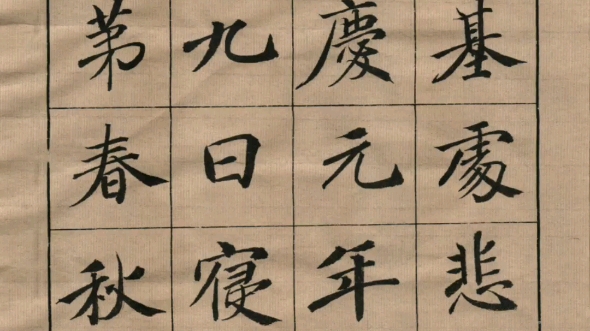 基處悲
慶元年
九日寑
第春秋